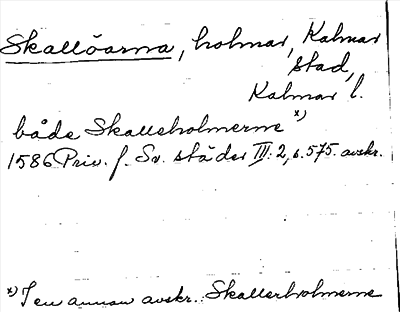 Skallöarna, holmar, Kalmar
stad,
Kalmar l.
både Skalleholmerne x)
1586 Priv. f. Sv. städer III: 2, s. 575. avskr.
x) I en annan avskr.: Skallerholmerne